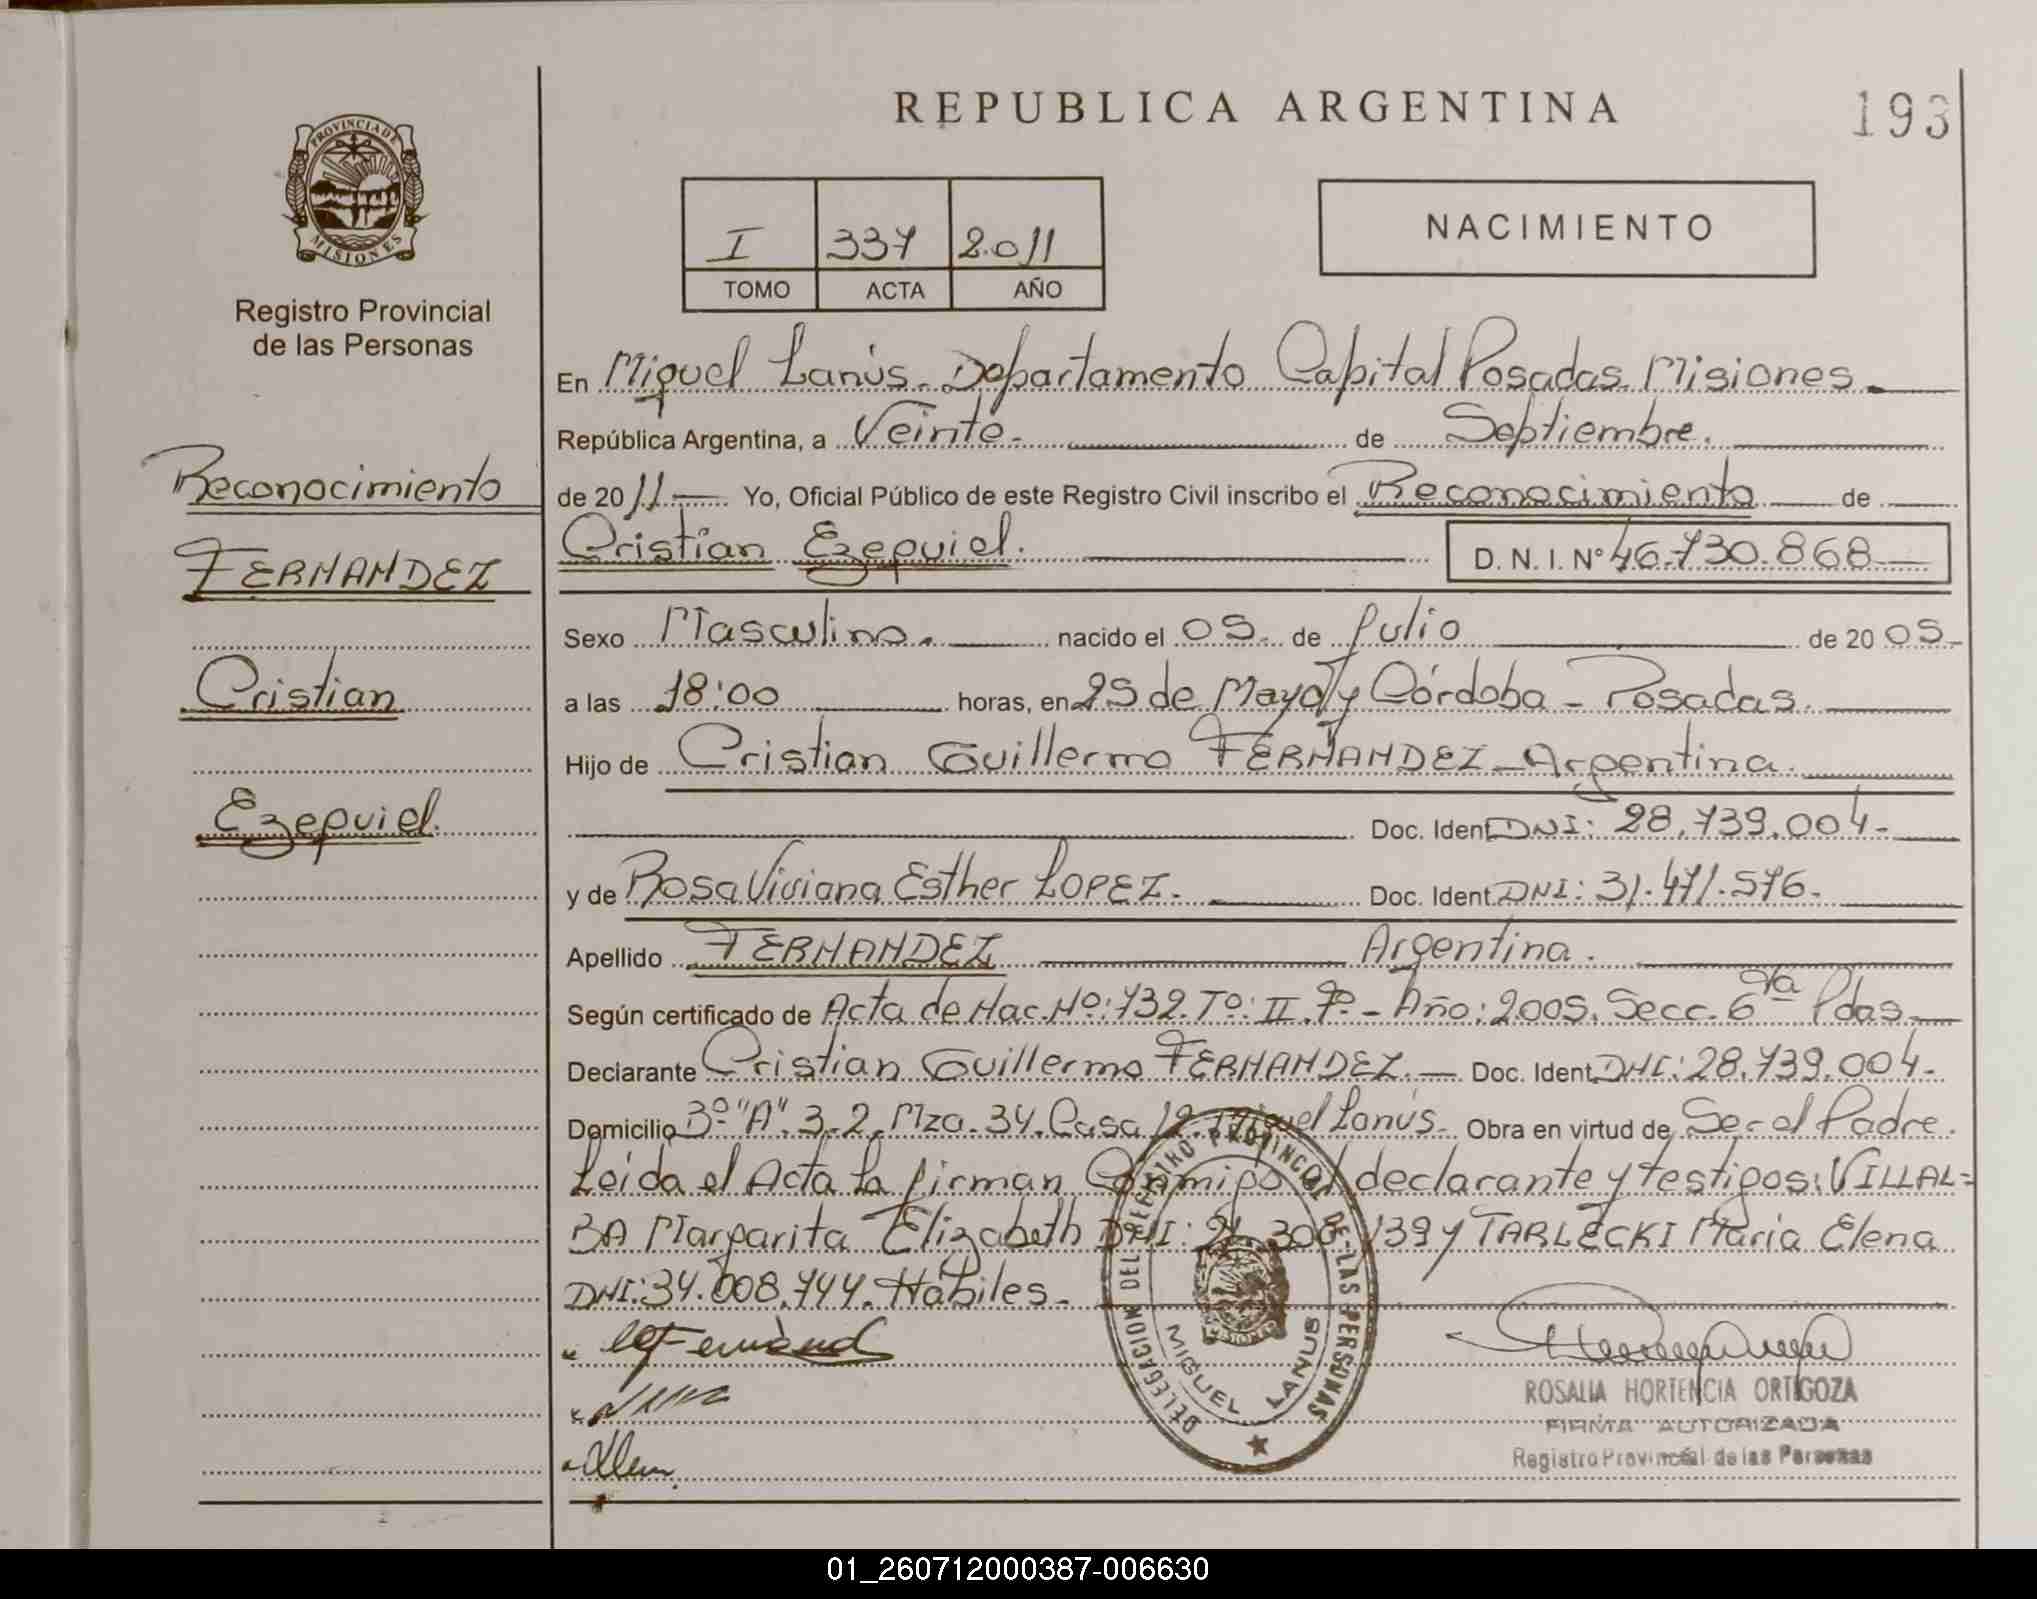 REPUBLICA ARGENTINA
193
PROVINCIA DE
MISIONES
Registro Provincial
de las Personas
I 337 2.011
TOMO ACTA AÑO
NACIMIENTO
En Miguel Lanús. Departamento Capital Posadas Misiones
República Argentina, a Veinte. de Septiembre.
de 2011 Yo, Oficial Público de este Registro Civil inscribo el Reconocimiento de
Cristian Ezequiel. D. N. I. Nº 46.730.868
Reconocimiento
FERNANDEZ
Cristian
Ezequiel.
Sexo Masculino. nacido el 05. de Julio de 20 05.
a las 18:00 horas, en 25 de Mayo y Córdoba - Posadas.
Hijo de Cristian Guillermo FERNANDEZ - Argentina.
Doc. Ident DNI: 28.739.004.
y de Rosa Viviana Esther LOPEZ. Doc. Ident. DNI: 31.471.576.
Apellido FERNANDEZ Argentina.
Según certificado de Acta de Nac. Nº: 732. Tº: II. Fº - Año: 2005. Secc. 6ta Pdas.
Declarante Cristian Guillermo FERNANDEZ. Doc. Ident. DNI: 28.739.004.
Domicilio Bº "A". 3-2. Mza. 34. Casa 12. Miguel Lanús. Obra en virtud de Ser el Padre.
Leída el Acta la firman Conmigo el declarante y testigos: VILLAL=
BA Margarita Elizabeth DNI: 139 y TARLECKI Maria Elena
DNI: 34.008.744. Hábiles.
DELEGACION DEL REGISTRO PROVINCIAL DE LAS PERSONAS
MIGUEL LANUS
MISIONES
ROSALIA HORTENCIA ORTIGOZA
FIRMA AUTORIZADA
Registro Provincial de las Personas
01_260712000387-006630